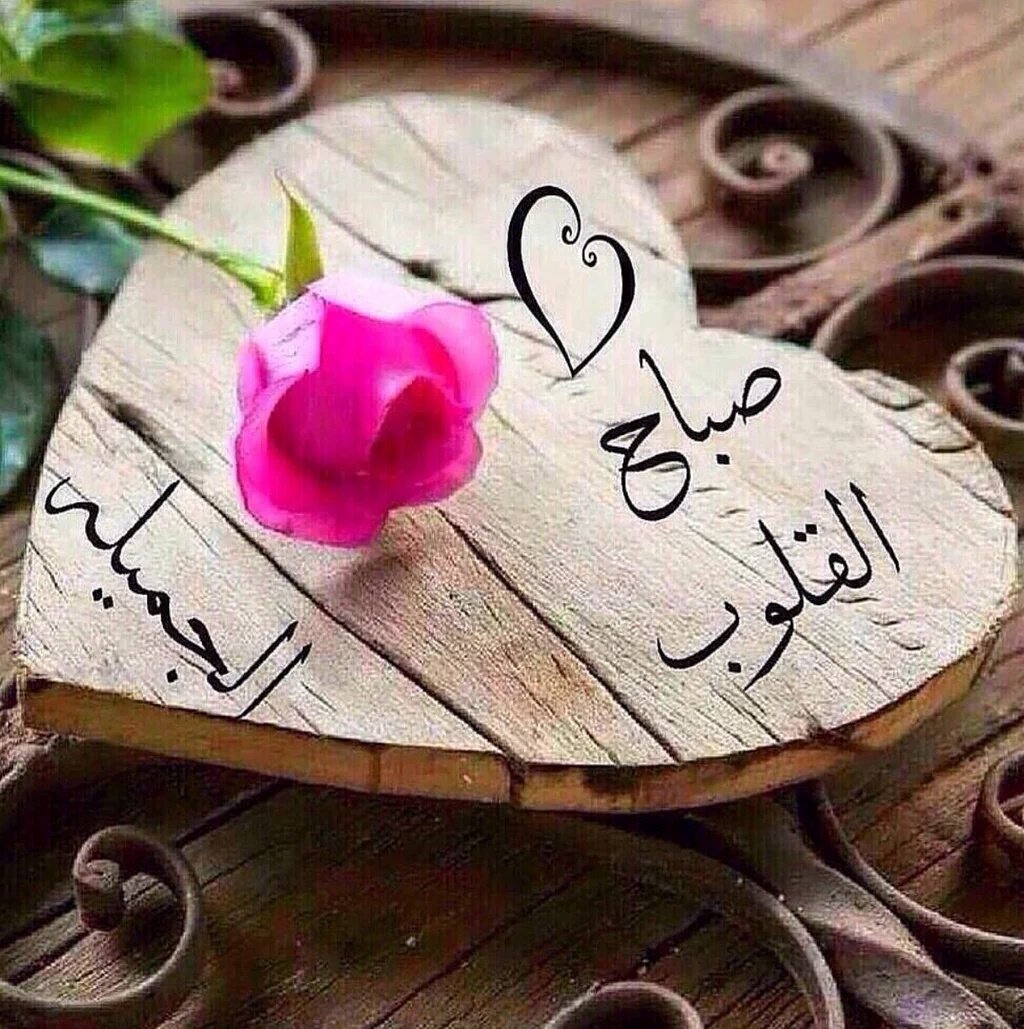 صباح
القلوب
الجميله